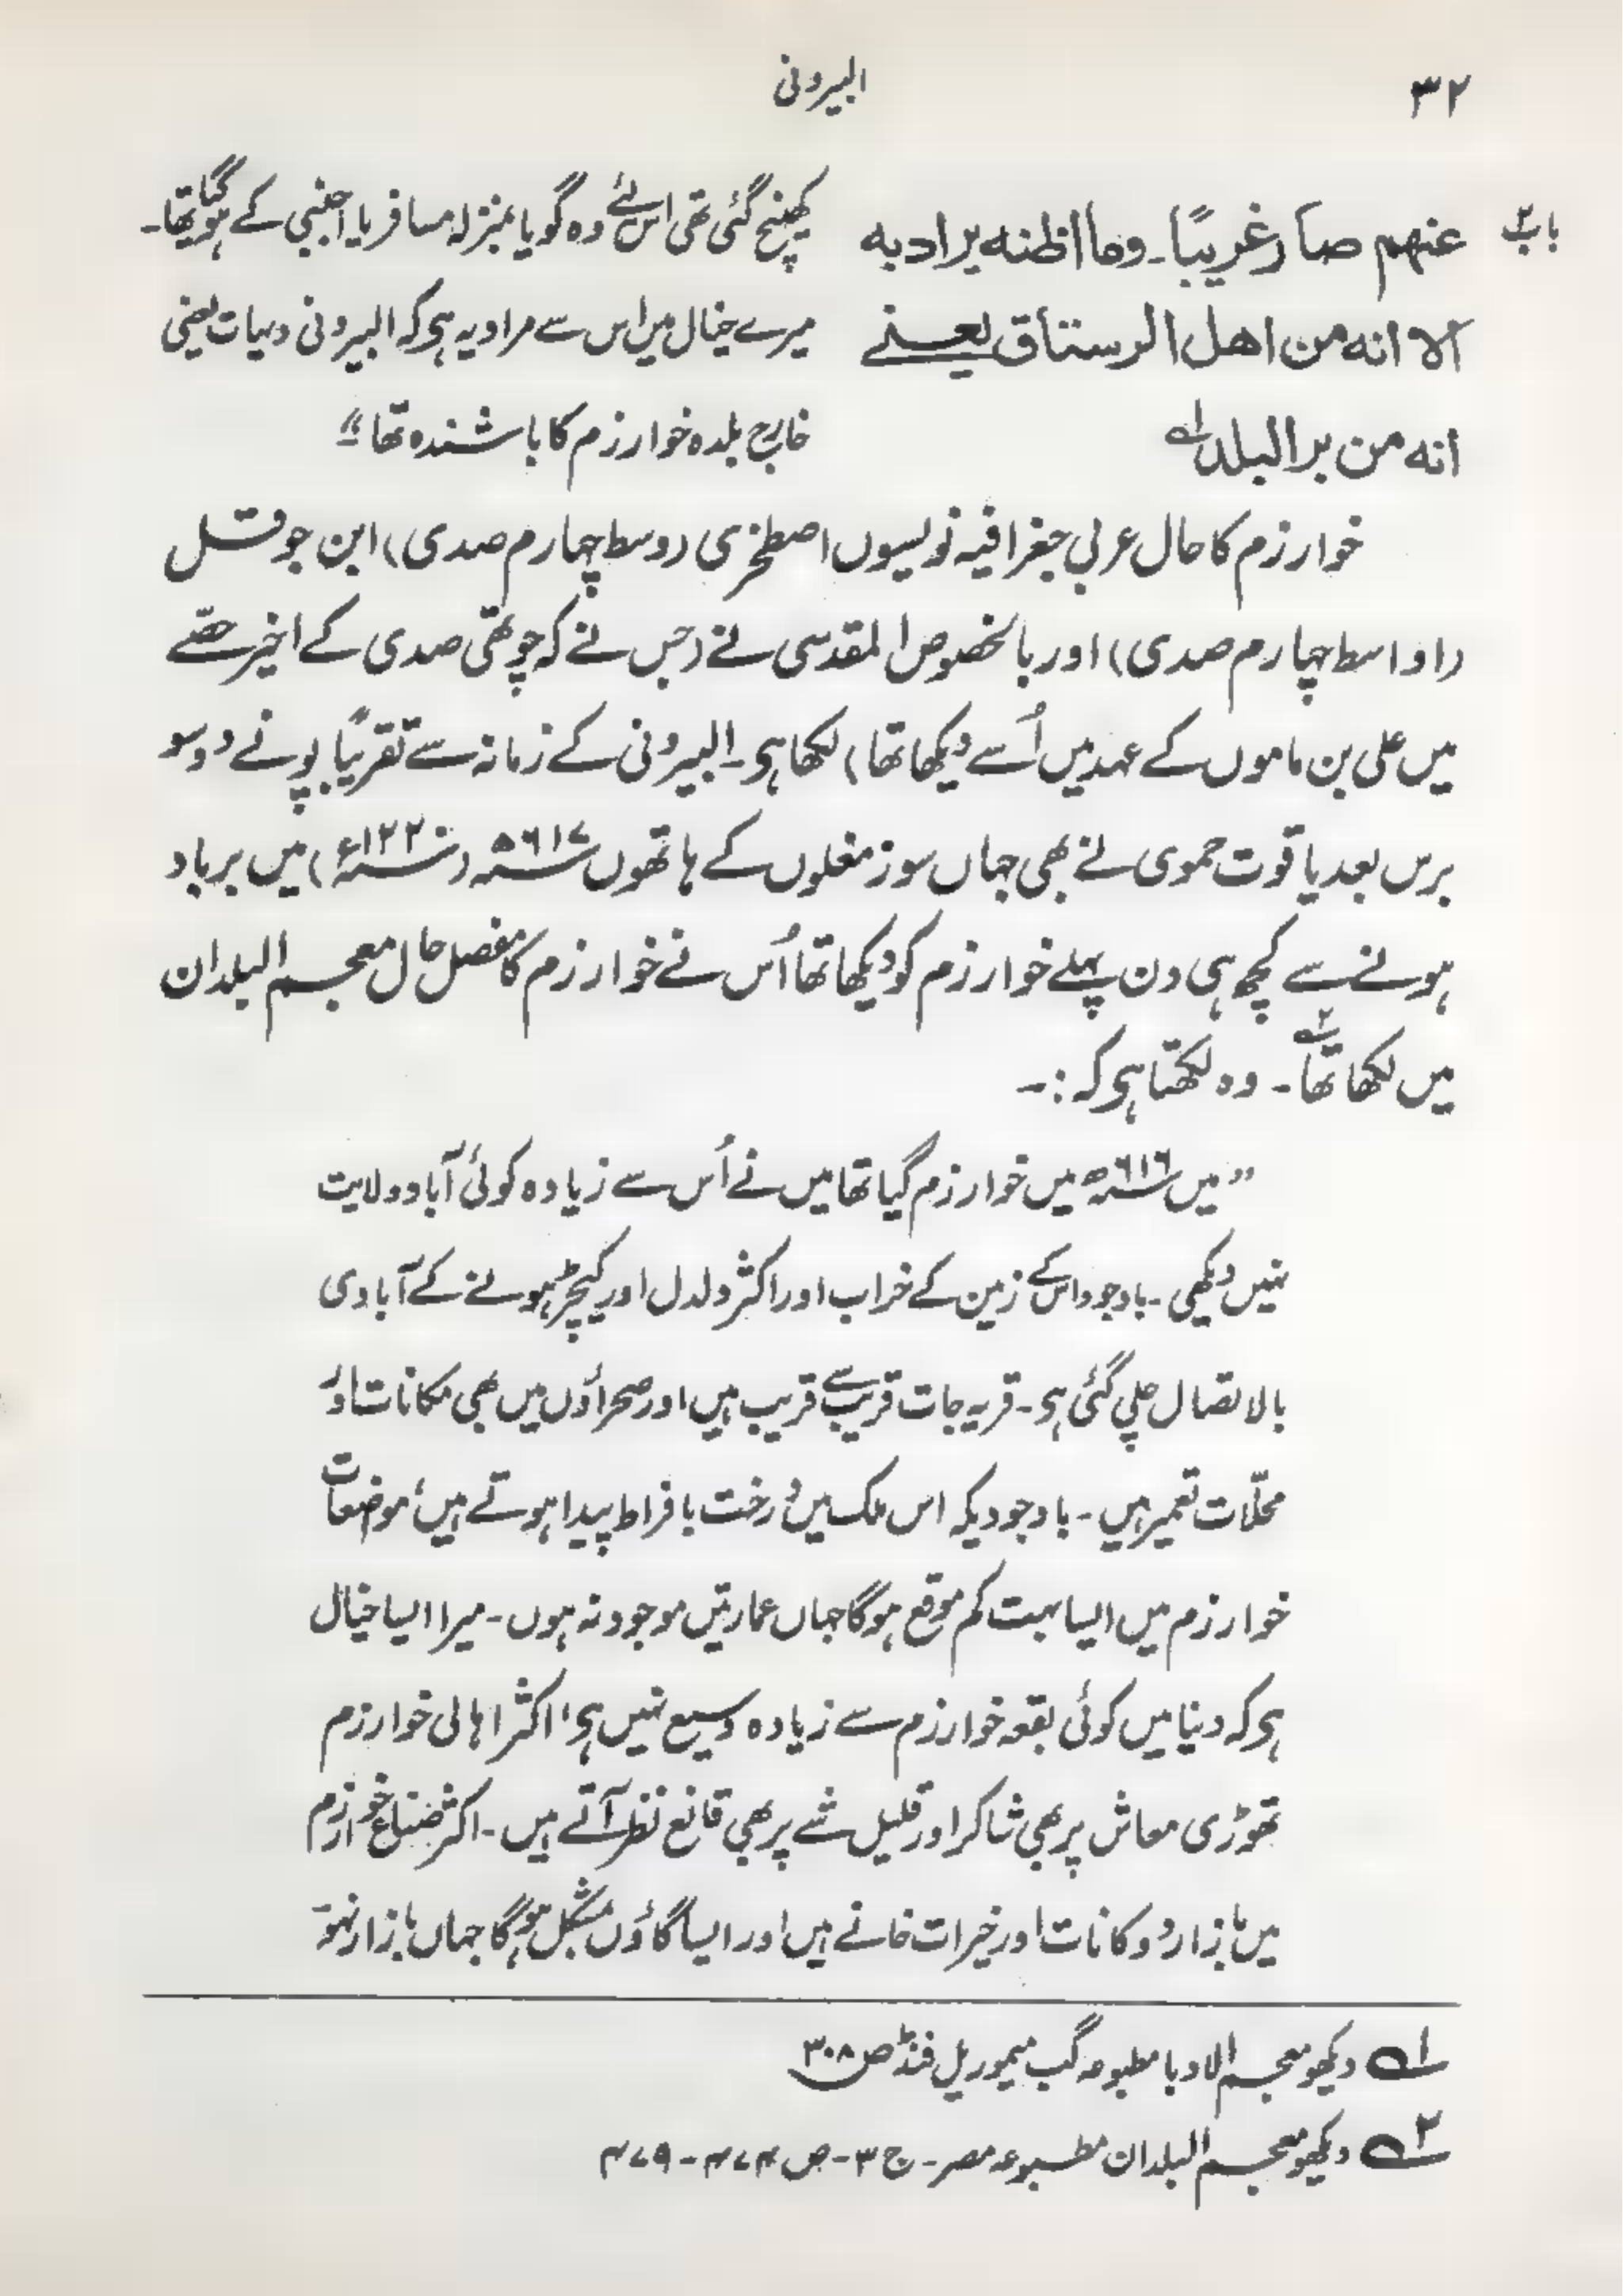 ۳۲
البیرونی
باب۲
عنهم صار غریبًا۔ وما اظنه یراد به
الا انه من اهل الرستاق یعنے
انه من بر البلد۱ے
کھنچ گئی تھی اس لئے وہ گویا بمنزلہ مسافر یا اجنبی کے ہو گیا تھا۔
میرے خیال میں اس سے مراد یہ ہی کہ البیرونی دہیات یعنی
خارج بلدہ خوارزم کا باشندہ تھا"
خوارزم کا حال عربی جغرافیہ نویسوں اصطخری (وسط چہارم صدی) ابن حوقل
(اواسط چہارم صدی) اور بالخصوص المقدسی نے (جس نے کہ چوتھی صدی کے اخیر حصّے
میں علی بن ماموں کے عہد میں اُسے دیکھا تھا) لکھا ہی۔ البیرونی کے زمانہ سے تقریبًا پونے دو سو
برس بعد یاقوت حموی نے بھی جہاں سوز مغلوں کے ہاتھوں ۶۱۷ھ (۱۲۲۰ء) میں برباد
ہونے سے کچھ ہی دن پہلے خوارزم کو دیکھا تھا اُس نے خوارزم کا مفصل حال معجم البلدان
میں لکھا تھا۲ے۔ وہ لکھتا ہی کہ :۔
"میں ۶۱۶ھ میں خوارزم گیا تھا میں نے اُس سے زیادہ کوئی آباد ولایت
نہیں دیکھی۔ باوجود اس کے زمین کے خراب اور اکثر دلدل اور کیچڑ ہونے کے آبادی
بالاتصال چلی گئی ہی۔ قریہ جات قریب سے قریب ہیں اور صحراؤں میں بھی مکانات اور
محلّات تعمیر ہیں۔ باوجودیکہ اس ملک میں درخت بافراط پیدا ہوتے ہیں، موضعات
خوارزم میں ایسا بہت کم موقع ہوگا جہاں عمارتیں موجود نہ ہوں۔ میرا ایسا خیال
ہی کہ دنیا میں کوئی بقعہ خوارزم سے زیادہ وسیع نہیں ہی، اکثر اہالی خوارزم
تھوڑی معاش پر بھی شاکر اور قلیل شے پر بھی قانع نظر آتے ہیں۔ اکثر ضیاع خوارزم
میں بازار دوکانات اور خیرات خانے ہیں اور ایسا گاؤں مشکل ہوگا جہاں بازار نہو۔
۱ے دیکھو معجم الادبا مطبوعہ گب میموریل فنڈ ص ۳۰۸
۲ے دیکھو معجم البلدان مطبوعہ مصر۔ ج ۳۔ ص ۴۷۴ - ۴۷۹